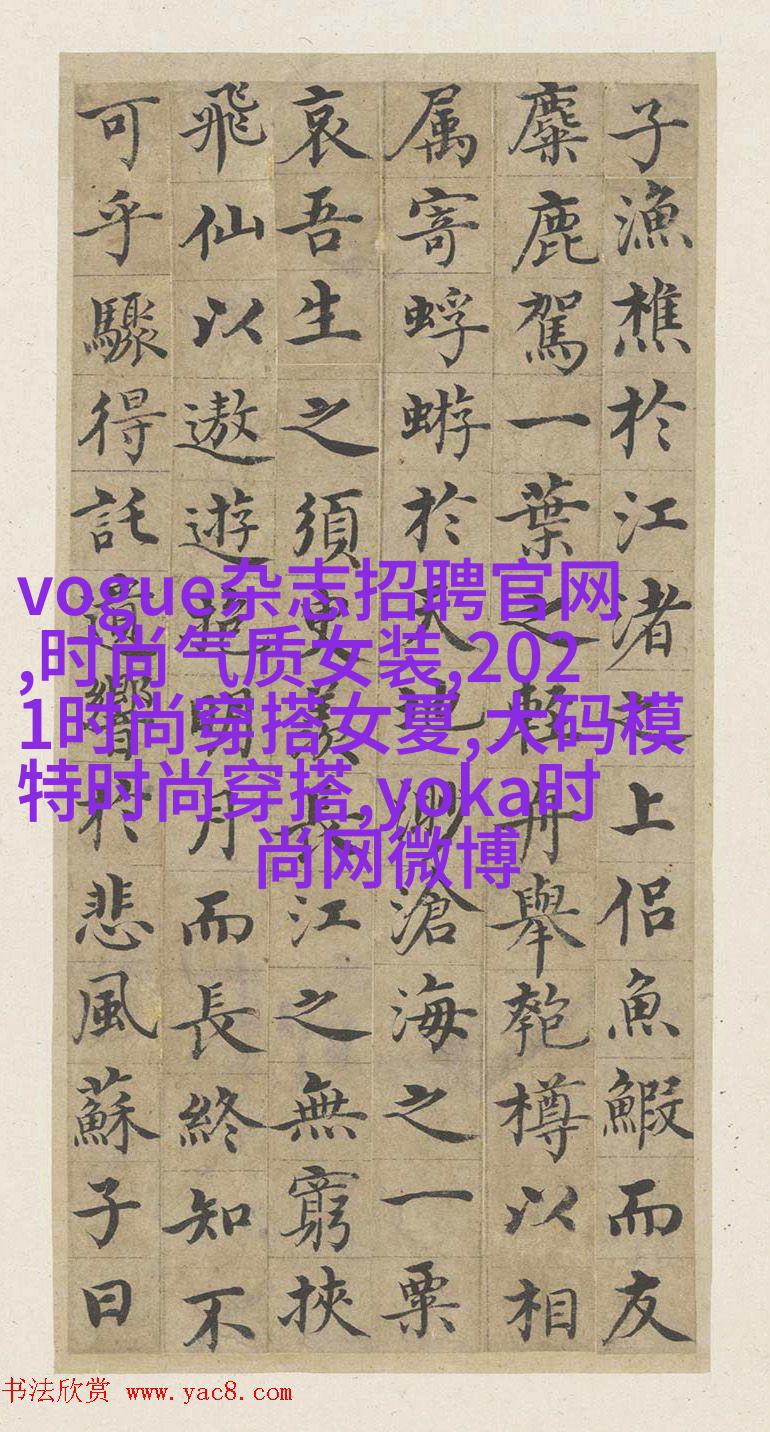 子漁樵於江渚之上侣魚鰕而友
麋鹿駕一葉之輕舟舉匏樽以相
属寄蜉蝣於天地渺滄海之一粟
哀吾生之須臾羡長江之無窮挾
飛仙以遨遊抱明月而長終知不
可乎驟得託遺響於悲風蘇子曰
vogue杂志招聘官网
,时尚气质女装,202
1时尚穿搭女夏,大码模
特时尚穿搭,yoka时
尚网微博
书法欣赏 www.yac8.com